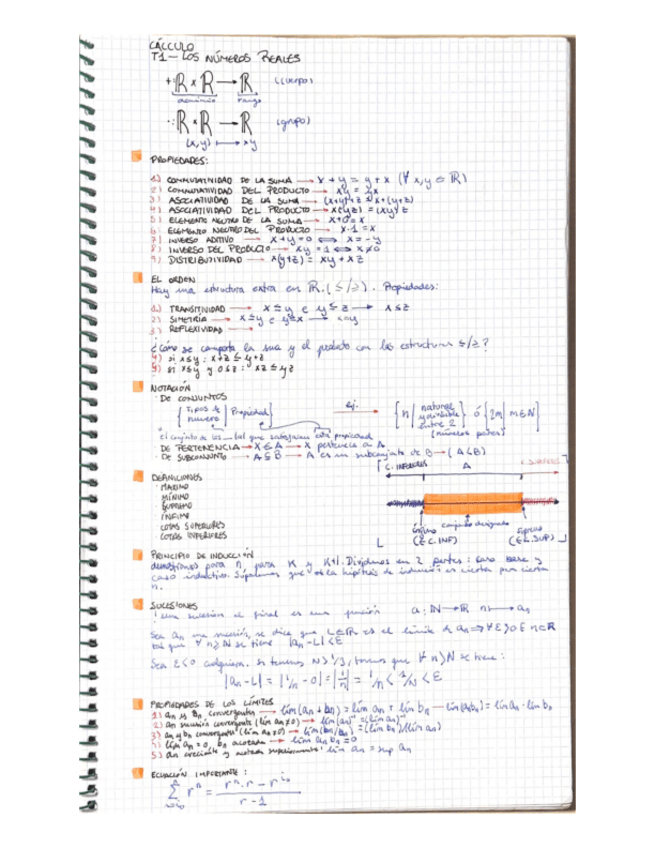 CÁLCULO
T1 — LOS NÚMEROS REALES
+: ℝ × ℝ → ℝ (cuerpo)
dominio rango
·: ℝ × ℝ → ℝ (grupo)
(x, y) ↦ xy
PROPIEDADES:
1) CONMUTATIVIDAD DE LA SUMA → x + y = y + x (∀ x, y ∈ ℝ)
2) CONMUTATIVIDAD DEL PRODUCTO → xy = yx
3) ASOCIATIVIDAD DE LA SUMA → (x+y)+z = x+(y+z)
4) ASOCIATIVIDAD DEL PRODUCTO → x(yz) = (xy)z
5) ELEMENTO NEUTRO DE LA SUMA → x+0=x
6) ELEMENTO NEUTRO DEL PRODUCTO → x·1=x
7) INVERSO ADITIVO → x+y=0 ⟺ x=-y
8) INVERSO DEL PRODUCTO → xy=1 ⟺ x≠0
9) DISTRIBUTIVIDAD → x(y+z) = xy + xz
EL ORDEN
Hay una estructura extra en ℝ, (≤/≥). Propiedades:
1) TRANSITIVIDAD → x≤y e y≤z → x≤z
2) SIMETRÍA → x≤y e y≤x → x=y
3) REFLEXIVIDAD →
¿Cómo se comporta la suma y el producto con las estructuras ≤/≥?
4) si x≤y: x+z ≤ y+z
5) si x≤y y 0≤z: xz ≤ yz
NOTACIÓN
· DE CONJUNTOS
{Tipos de número | Propiedad} ej. → {n | natural y divisible entre 2} ó {2m | m∈ℕ}
(números pares)
el conjunto de los __ tal que satisfacen esta propiedad
· DE PERTENENCIA → x∈A → x pertenece a A
· DE SUBCONJUNTO → A⊆B → A es un subconjunto de B → (A⊂B)
DEFINICIONES
· MÁXIMO
MÍNIMO
SUPREMO
ÍNFIMO
COTAS SUPERIORES
COTAS INFERIORES
C. INFERIORES A C. SUPERIORES
ínfimo conjunto designado supremo
(∈ C. INF) (∈ C. SUP)
PRINCIPIO DE INDUCCIÓN
demostramos para n, para K y K+1. Dividimos en 2 partes: caso base y
caso inductivo. Suponemos que la hipótesis de inducción es cierta para cierta
n.
SUCESIONES
una sucesión al final es una función a: ℕ → ℝ n ↦ aₙ
Sea aₙ una sucesión, se dice que L∈ℝ es el límite de aₙ ⟹ ∀ ε>0 ∃ n∈ℝ
tal que ∀ n≥N se tiene |aₙ-L|<ε
Sea ε<0 cualquiera. Si tenemos N>1/ε, tenemos que ∀ n>N se tiene:
|aₙ-L| = |1/n - 0| = |1/n| = 1/n < 1/N < ε
PROPIEDADES DE LOS LÍMITES
1) aₙ y bₙ convergentes → lím(aₙ+bₙ) = lím aₙ + lím bₙ — lím(aₙbₙ) = lím aₙ · lím bₙ
2) aₙ sucesión convergente (lím aₙ≠0) → lím(aₙ)⁻¹ = (lím aₙ)⁻¹
3) aₙ y bₙ convergentes (lím aₙ≠0) → lím(bₙ/aₙ) = (lím bₙ)/(lím aₙ)
4) lím aₙ = 0, bₙ acotada → lím aₙbₙ = 0
5) aₙ creciente y acotada superiormente: lím aₙ = sup aₙ
ECUACIÓN IMPORTANTE:
∑ rⁿ = (rⁿ·r - r^i₀)/(r-1)